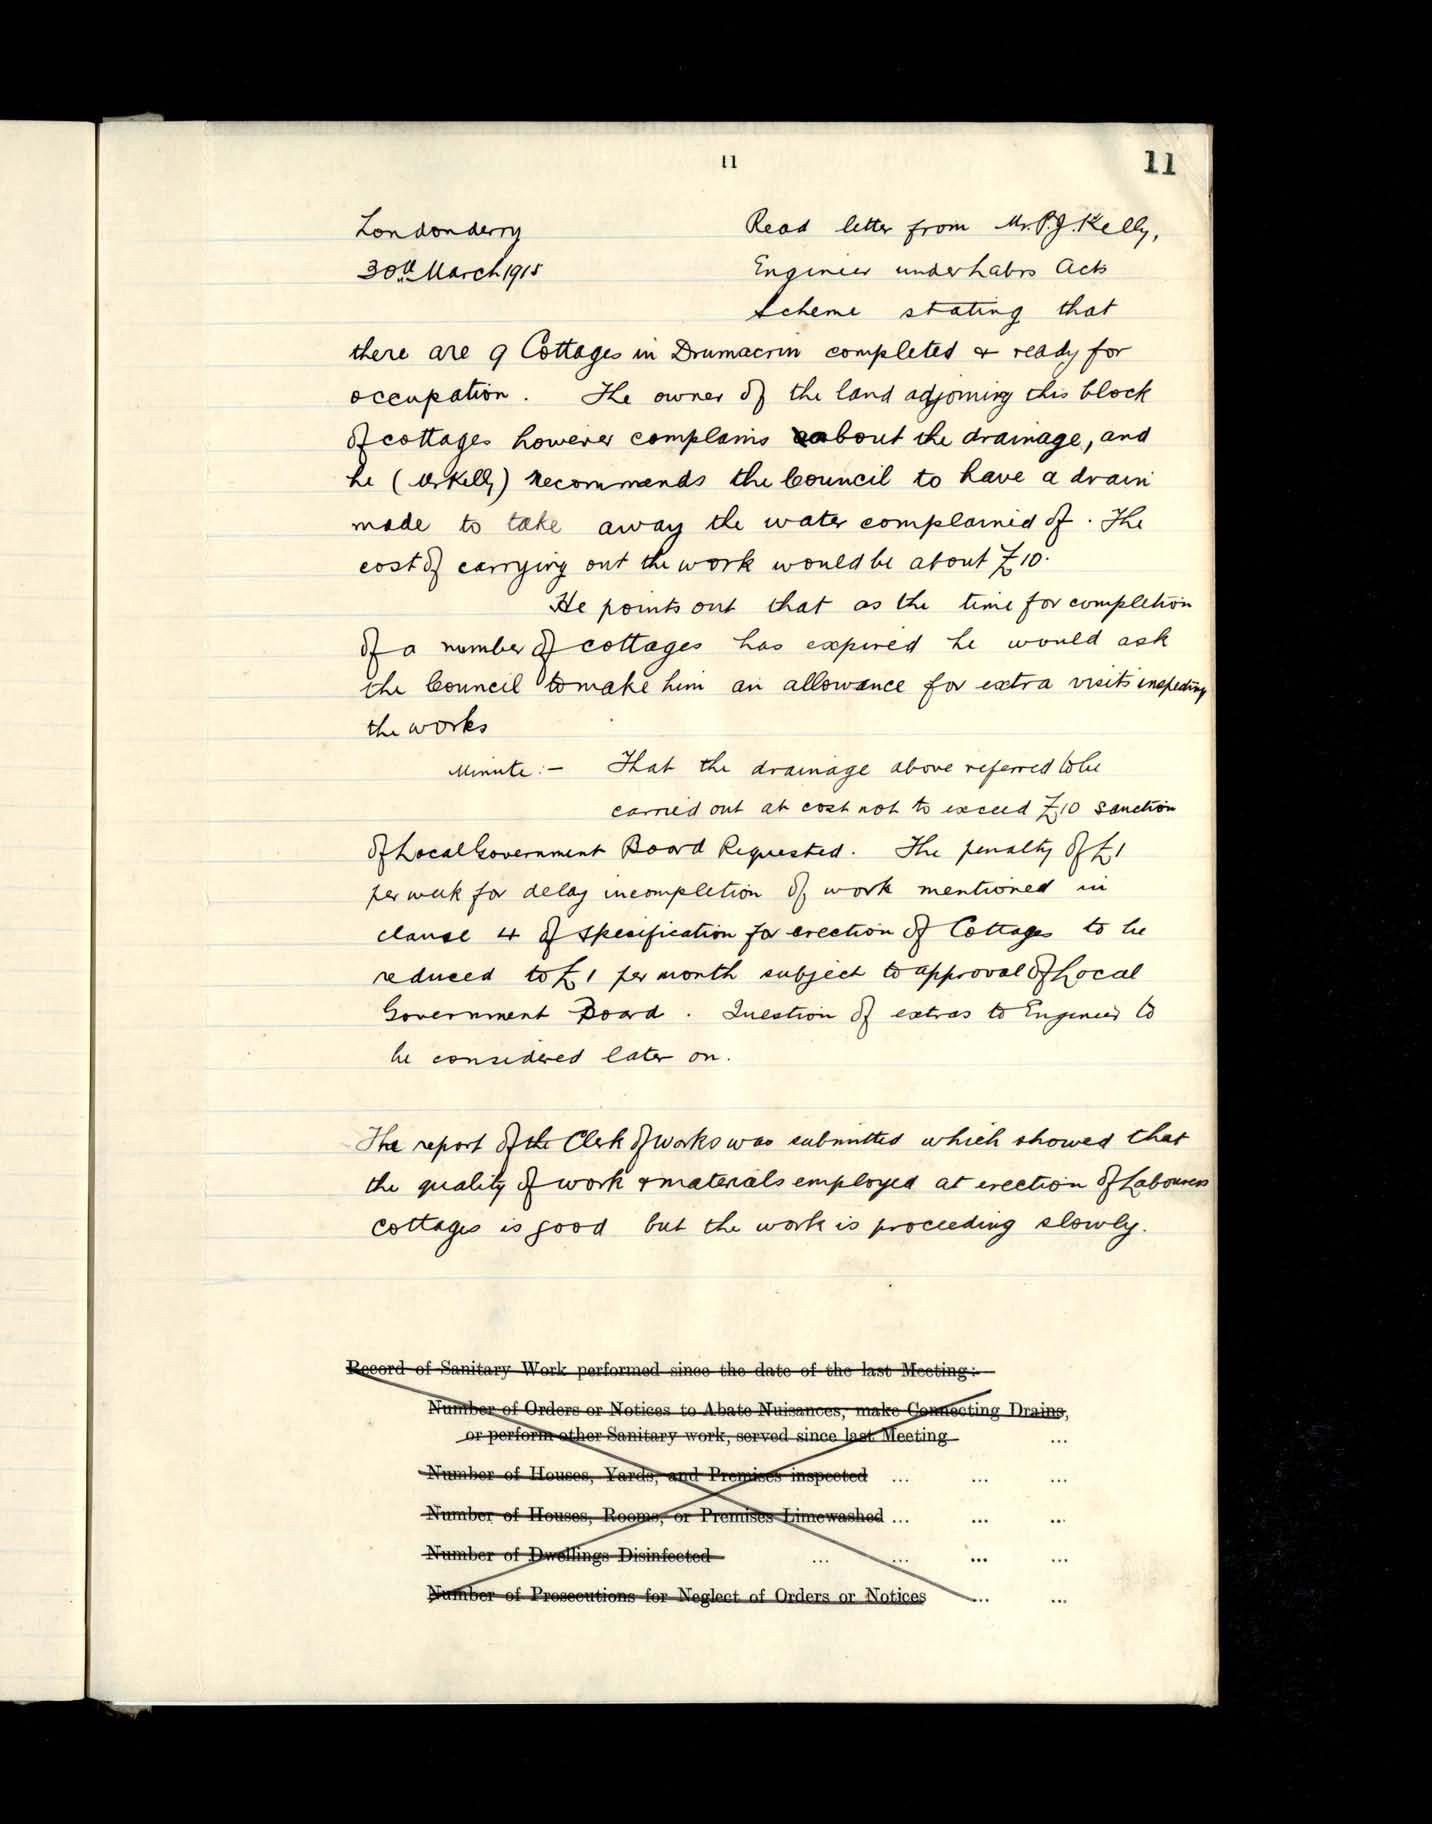 11
11
Londonderry
30th March 1915
Read letter from Mr. P. J. Kelly,
Engineer under Labrs Acts
Scheme stating that
there are 9 Cottages in Drumacrin completed & ready for
occupation. The owner of the land adjoining this block
of cottages however complains about the drainage, and
he (Mr Kelly) recommends the Council to have a drain
made to take away the water complained of. The
cost of carrying out the work would be about £10.
He points out that as the time for completion
of a number of cottages has expired he would ask
the Council to make him an allowance for extra visits inspecting
the works
Minute:- That the drainage above referred to be
carried out at cost not to exceed £10 sanction
of Local Government Board Requested. The penalty of £1
per week for delay in completion of work mentioned in
clause 4 of specification for erection of Cottages to be
reduced to £1 per month subject to approval of Local
Government Board. Question of extras to Engineer to
be considered later on.
The report of the Clerk of works was submitted which showed that
the quality of work & materials employed at erection of Labourers
cottages is good but the work is proceeding slowly.
Record of Sanitary Work performed since the date of the last Meeting:-
Number of Orders or Notices to Abate Nuisances, make Connecting Drains,
or perform other Sanitary work, served since last Meeting ...
Number of Houses, Yards, and Premises inspected ... ... ...
Number of Houses, Rooms, or Premises Limewashed ... ... ...
Number of Dwellings Disinfected ... ... ... ...
Number of Prosecutions for Neglect of Orders or Notices ... ...